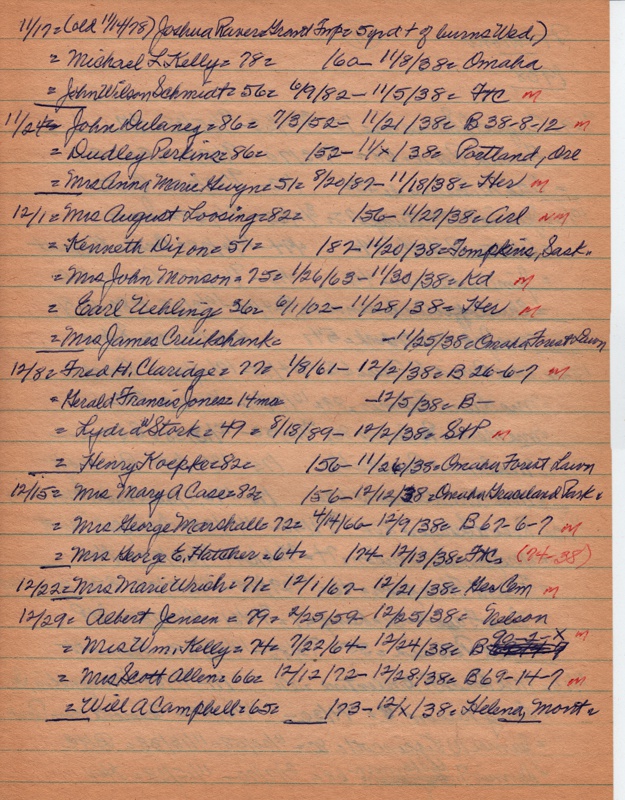 11/17 = (old 11/14/78) Joshua Ravers Grand = 5 yrd + of burns Wed,)
= Michael L Kelly = 78 = 160 - 11/8/38 = Omaha
= John Wilson Schmidt = 56 = 6/9/82 - 11/5/38 = M
11/24 = John Dulaney = 86 = 7/3/52 - 11/21/38 = B 38-8-12 M
= Dudley Perkins = 86 = 152 - 11/x/38 = Portland, Ore
= Mrs Anna Marie Gwyn = 51 = 8/20/87 - 11/18/38 = Her M
12/1 = Mrs August Loosing = 82 = 156 - 11/27/38 = Arl NM
= Kenneth Dixon = 51 = 187 - 11/20/38 = Tompkins, Sask.
= Mrs John Monson = 75 = 1/26/63 - 11/30/38 = Kd M
= Earl Uehling = 36 = 6/1/02 - 11/28/38 = Her M
= Mrs James Cruikshank = - 11/25/38 = Omaha Forest Lawn
12/8 = Fred H. Claridge = 77 = 1/8/61 - 12/2/38 = B 26-6-7 M
= Herald Francis Jones = 14 mo = - 12/5/38 = B -
= Lyda W Stork = 49 = 8/18/89 - 12/2/38 = StP M
= Henry Koepke = 82 = 156 - 11/26/38 = Omaha Forest Lawn
12/15 = Mrs Mary A Case = 82 = 156 - 12/12/38 = Omaha Graceland Park =
= Mrs George Marshall = 72 = 4/14/66 - 12/9/38 = B 67-6-7 M
= Mrs George E. Hatcher = 64 = 174 - 12/13/38 = (74-38)
12/22 = Mrs Marie Wrich = 71 = 12/1/67 - 12/21/38 = Ger Cem M
12/29 = Albert Jensen = 79 = 2/25/59 - 12/25/38 = Nelson
= Mrs Wm. Kelly = 74 = 7/22/64 - 12/24/38 = B 90-2-X M
= Mrs Scott Allen = 66 = 12/12/72 - 12/28/38 = B 69-14-7 M
= Will A Campbell = 65 = 173 - 12/x/38 = Helena, Mont =